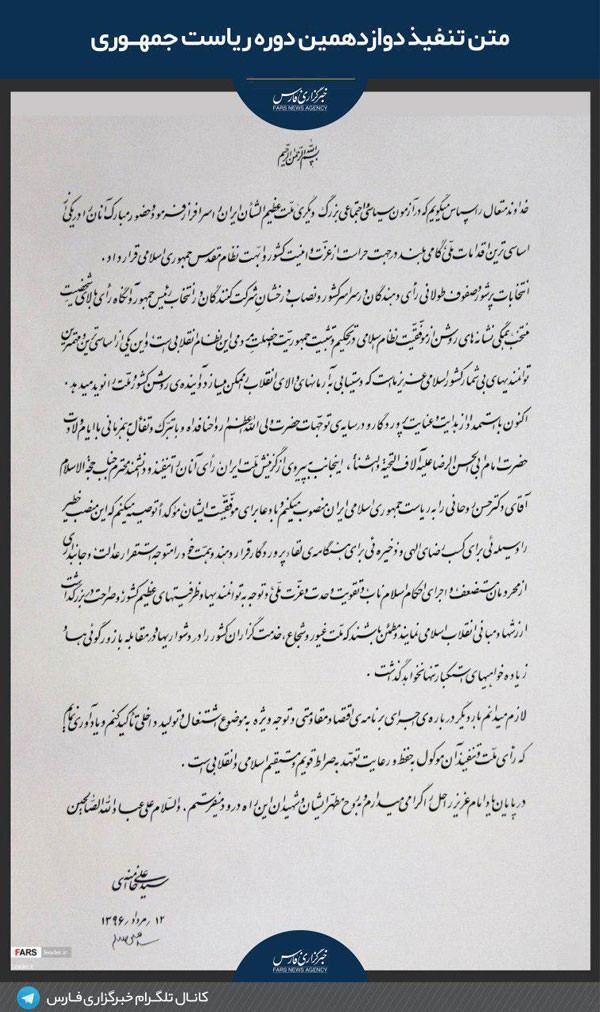 متن تنفیذ دوازدهمین دوره ریاست جمهوری
خبرگزاری فارس
FARS NEWS AGENCY
بسم الله الرحمن الرحیم
خداوند متعال را سپاس میگویم که در آزمون سیاسی و اجتماعی بزرگ دیگری ملت عظیم‌الشأن ایران را سرافراز فرمود و حضور مبارک آنان را در یکی از
اساسی‌ترین اقدامات ملی گامی بلند در جهت حراست از عزت و امنیت کشور و ابهت نظام مقدس جمهوری اسلامی قرار داد.
انتخابات پرشور و صفوف طولانی رأی دهندگان در سراسر کشور و نصاب درخشان شرکت کنندگان در انتخاب رئیس جمهور و آنگاه رأی بالای شخصیت
منتخب همگی نشانه‌های روشن از موفقیت نظام اسلامی در تحکیم و تثبیت جمهوریت و خصلت مردمی این نظام انقلابی است و این یکی از اساسی‌ترین و مهمترین
توانمندیهای بی‌شمار کشور اسلامی عزیز ما است که دستیابی به آرمانهای والای انقلاب را ممکن میسازد و آینده‌ی روشن کشور و ملت را نوید میدهد.
اکنون با استمداد از هدایت و عنایت پروردگار و در سایه‌ی توجهات حضرت ولی الله الاعظم روحنا فداه و با تبرک و تفأل به همزمانی با ایام ولادت
حضرت امام ابی‌الحسن الرضا علیه آلاف التحیة و الثناء، اینجانب به پیروی از گزینش ملت ایران رأی آنان را تنفیذ و دانشمند محترم جناب حجةالاسلام
آقای دکتر حسن روحانی را به ریاست جمهوری اسلامی ایران منصوب میکنم و با دعا برای موفقیت ایشان مؤکداً توصیه میکنم که این منصب خطیر
را وسیله‌ئی برای کسب رضای الهی و ذخیره‌ئی برای هنگامه‌ی لقاء پروردگار قرار دهند و همت خود را متوجه استقرار عدالت و جانبداری
از محرومان و مستضعفان و اجرای احکام اسلام ناب و تقویت وحدت و عزت ملی و توجه به توانمندیها و ظرفیتهای عظیم کشور و صراحت در بزرگداشت
ارزشها و مبانی انقلاب اسلامی نمایند و مطمئن باشند که ملت غیور و شجاع، خدمت‌گزاران کشور را در دشواریها و در مقابله با زورگوئی‌ها و
زیاده‌خواهیهای استکبار تنها نخواهد گذاشت.
لازم میدانم بار دیگر درباره‌ی اجرای برنامه‌ی اقتصاد مقاومتی و توجه ویژه به موضوع اشتغال و تولید داخلی تأکید کنم و یادآوری نمایم
که رأی ملت و تنفیذ آن موکول به حفظ و رعایت تعهد به صراط قویم و مستقیم اسلامی و انقلابی است.
در پایان یاد امام عزیز راحل را گرامی میدارم و به روح مطهر ایشان و شهیدان این راه درود میفرستم. والسلام علی عباد الله الصالحین
سید علی خامنه‌ای
۱۲/مرداد/۱۳۹۶
FARS
leader.ir
خبرگزاری فارس
FARS NEWS AGENCY
کانال تلگرام خبرگزاری فارس